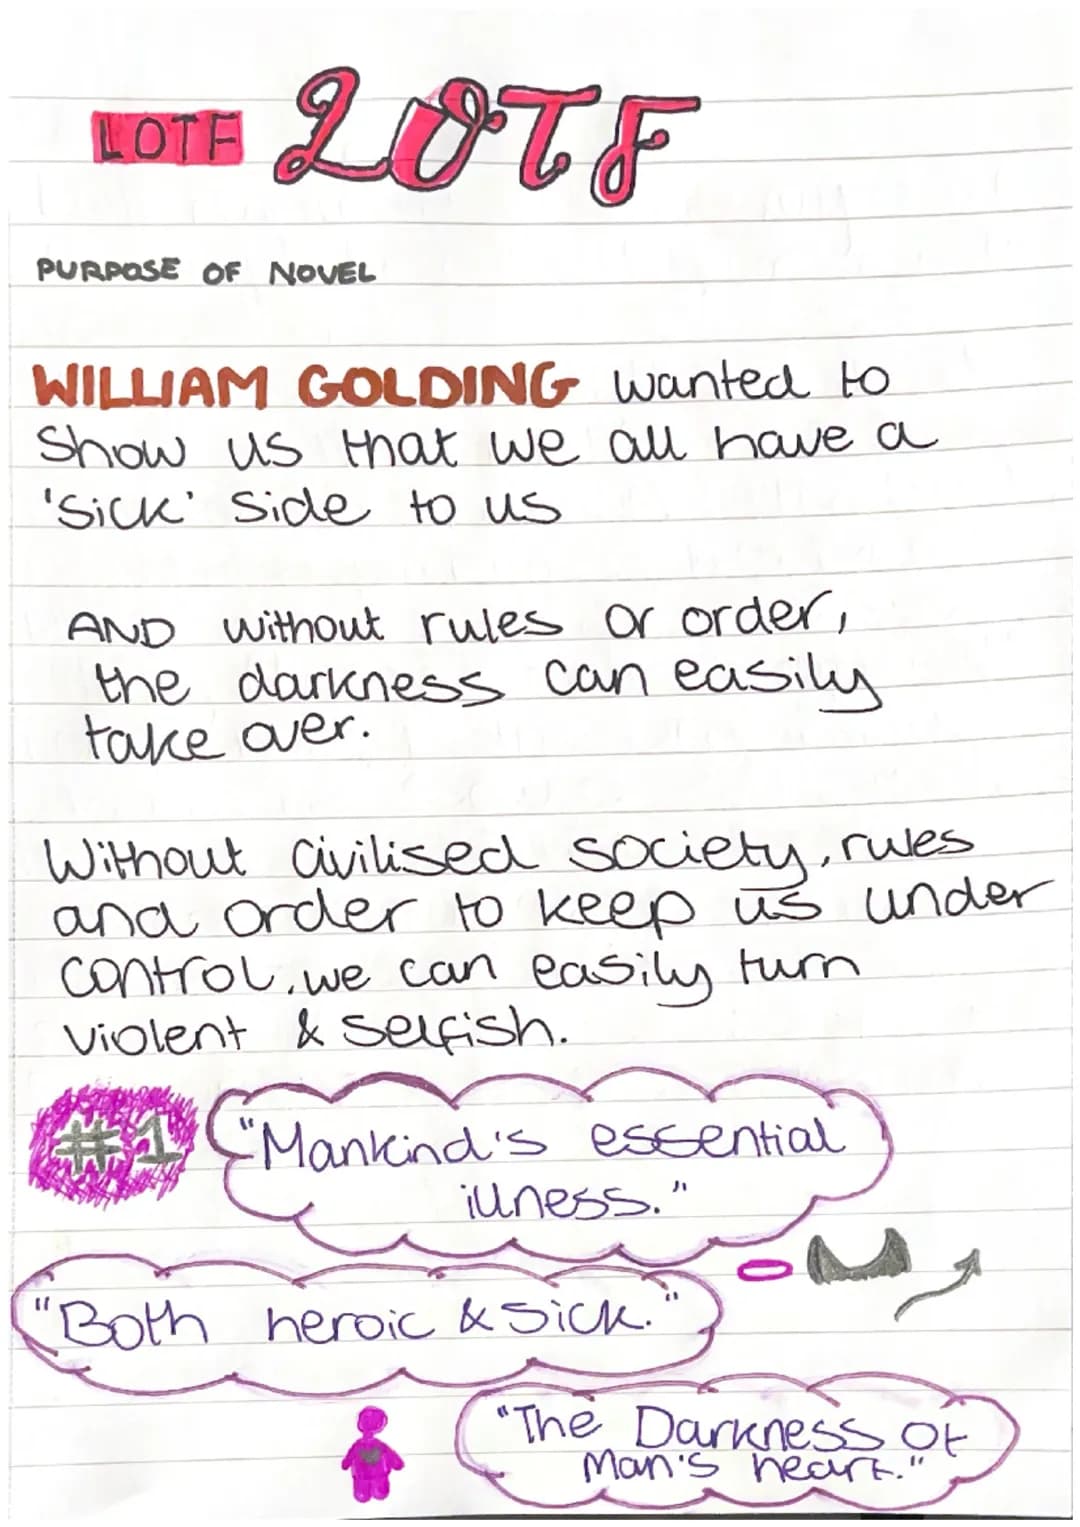 LOTF LOTF
PURPOSE OF NOVEL
WILLIAM GOLDING wanted to
Show us that we all have a
'sick' side to us
AND without rules or order,
the darkness can easily
take over.
Without civilised society, rules
and order to keep us under
control, we can easily turn
violent & selfish.
#1
"Mankind's essential
illness."
"Both heroic & sick."
"The Darkness of
Man's heart."